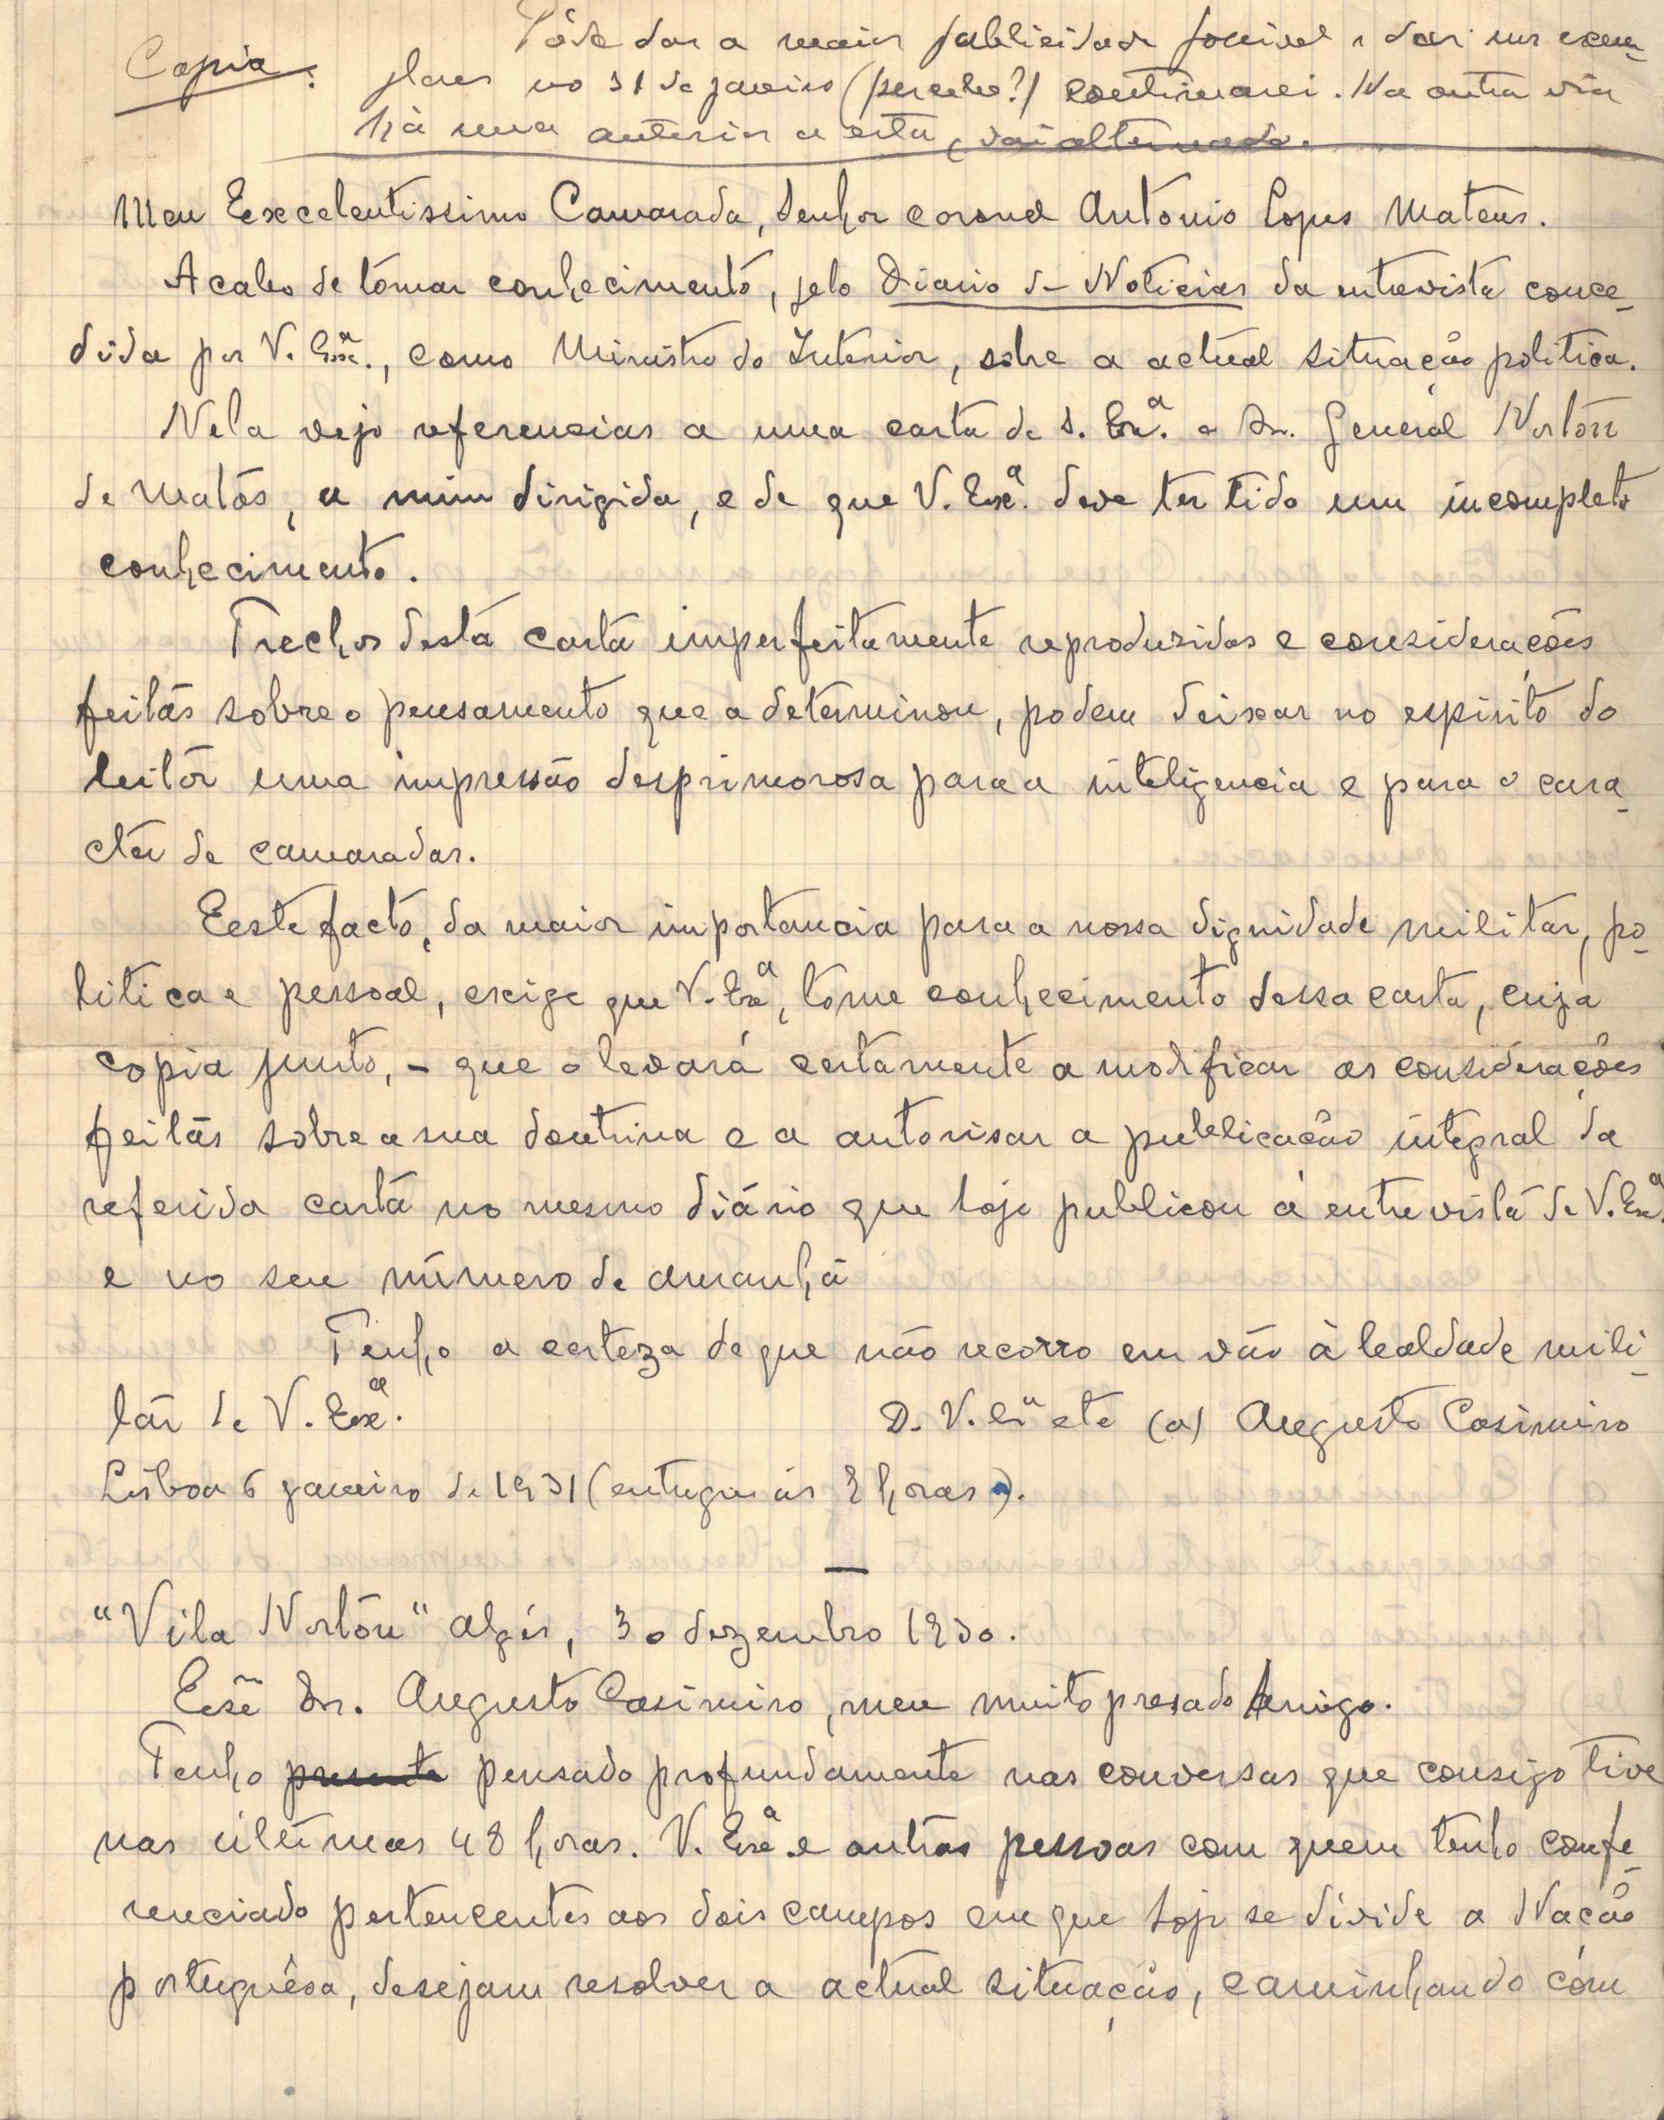 Copia.
Póde dar a maior publicidade possivel e dar uns exem-
plares no 31 de janeiro (percebe?) continuarei. Na outra via
há uma anterior a esta, vai alternada.
Meu Excelentissimo Camarada, Senhor coronel Antonio Lopes Mateus.
Acabo de tomar conhecimento, pelo Diario de Noticias da entrevista conce-
dida por V. Exª., como Ministro do Interior, sobre a actual situação politica.
Nela vejo referencias a uma carta de S. Exª. o Sr. General Norton
de Matos, a mim dirigida, e de que V. Exª. deve ter tido um incompleto
conhecimento.
Trechos desta carta imperfeitamente reproduzidos e considerações
feitas sobre o pensamento que a determinou, podem deixar no espirito do
leitor uma impressão desprimorosa para a inteligencia e para o cara-
cter de camaradas.
Este facto, da maior importancia para a nossa dignidade militar, po-
litica e pessoal, exige que V. Exª, tome conhecimento dessa carta, cuja
copia junto, - que o levará certamente a modificar as considerações
feitas sobre a sua doutrina e a autorisar a publicação integral da
referida carta no mesmo diário que hoje publicou a entrevista de V. Exª.
e no seu número de amanhã
Tenho a certeza de que não recorro em vão à lealdade mili-
tar de V. Exª.
D. V. Exª etc (a) Augusto Casimiro
Lisboa 6 janeiro de 1931 (entregue às 2 horas).
—
"Vila Norton" Algés, 30 dezembro 1930.
Exmº Sr. Augusto Casimiro, meu muito presado Amigo.
Tenho pensado profundamente nas conversas que consigo tive
nas últimas 48 horas. V. Exª. e outras pessoas com quem tenho confe-
renciado pertencentes aos dois campos em que hoje se divide a Nação
portuguêsa, desejam resolver a actual situação, caminhando com